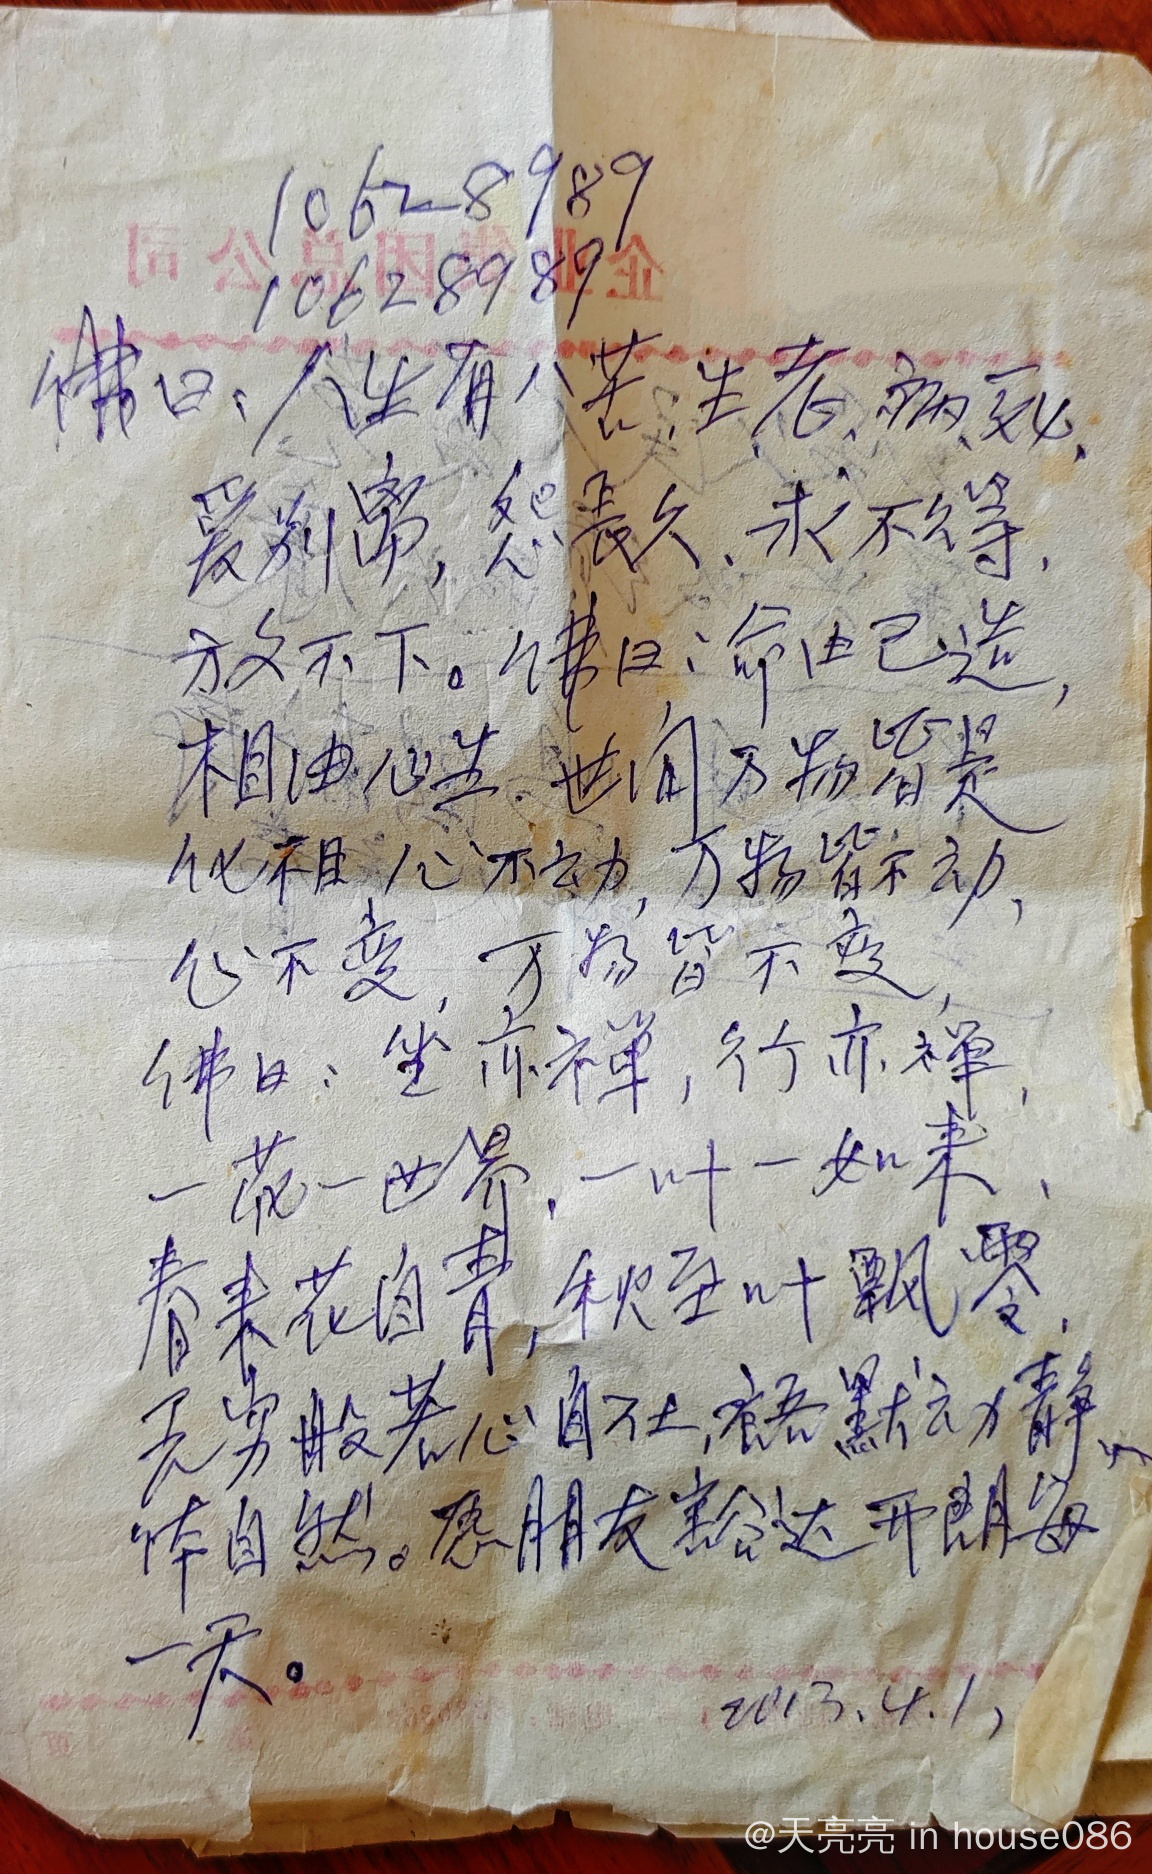 10628989
企业集团总公司
10628989
佛曰:人生有八苦:生、老、病、死、
爱别离,怨長久、求不得、
放不下。佛曰:命由己造,
相由心生.世间万物皆是
化相,心不动,万物皆不动,
心不变,万物皆不变,
佛曰:坐亦禅,行亦禅,
一花一世界,一叶一如来,
春来花自青,秋至叶飘零,
无穷般若心自在,語默动静
体自然。愿朋友豁达开朗每
一天。
2013.4.1,
@天亮亮 in house086